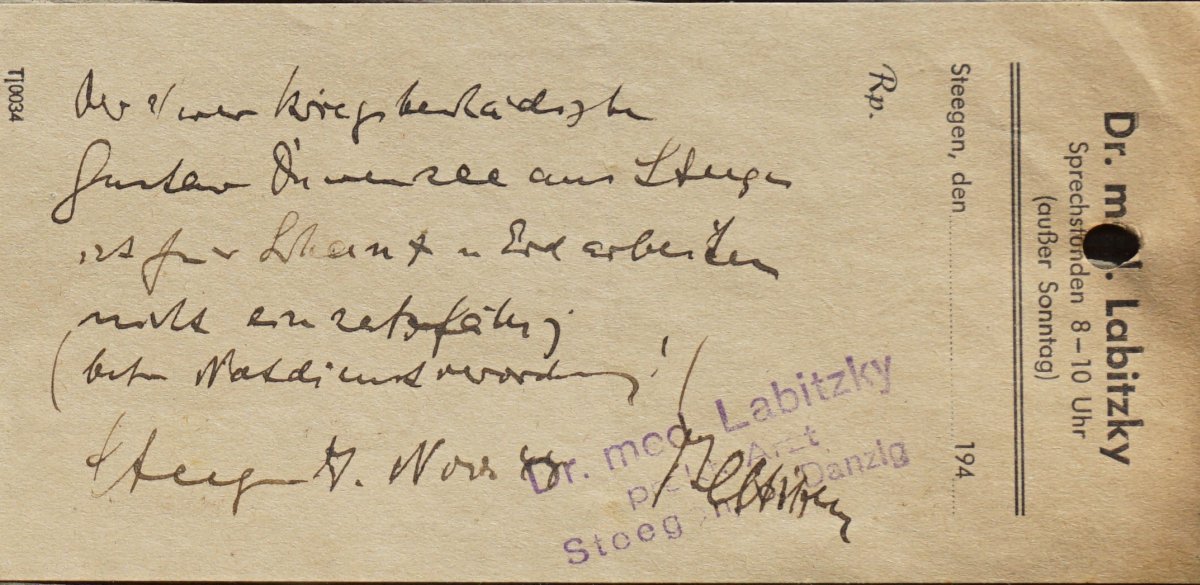 Dr. med. Labitzky
Sprechstunden 8–10 Uhr
(außer Sonntag)
Steegen, den 194
Rp.
Der Kriegsbeschädigte
Gustav aus Steegen
ist für Schanz u Erdarbeiten
nicht einsatzfähig
(betr Notdienstverordnung!)
Steegen Nov
Dr. med. Labitzky
pr. Arzt
Steeg Danzig
Tj0034